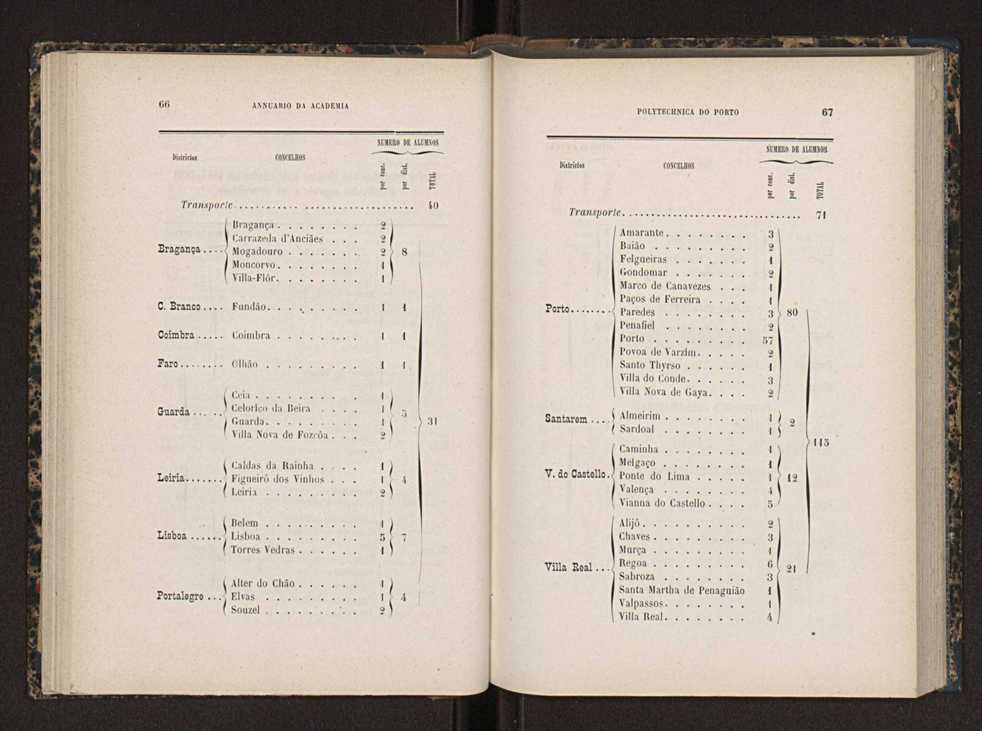 66 ANNUARIO DA ACADEMIA
NUMERO DE ALUMNOS
Districtos CONCELHOS por conc. por dist. TOTAL
Transporte 40
Bragança 2
Carrazeda d'Anciães 2
Bragança Mogadouro 2 8
Moncorvo 1
Villa-Flôr 1
C. Branco Fundão 1 1
Coimbra Coimbra 1 1
Faro Olhão 1 1
Ceia 1
Guarda Celorico da Beira 1 5
Guarda 1 31
Villa Nova de Fozcôa 2
Caldas da Rainha 1
Leiria Figueiró dos Vinhos 1 4
Leiria 2
Belem 1
Lisboa Lisboa 5 7
Torres Vedras 1
Alter do Chão 1
Portalegre Elvas 1 4
Souzel 2
POLYTECHNICA DO PORTO 67
NUMERO DE ALUMNOS
Districtos CONCELHOS por conc. por dist. TOTAL
Transporte 71
Amarante 3
Baião 2
Felgueiras 1
Gondomar 2
Marco de Canavezes 1
Paços de Ferreira 1
Porto Paredes 3 80
Penafiel 2
Porto 57
Povoa de Varzim 2
Santo Thyrso 1
Villa do Conde 3
Villa Nova de Gaya 2
Santarem Almeirim 1 2
Sardoal 1
115
Caminha 1
Melgaço 1
V. do Castello Ponte do Lima 1 12
Valença 4
Vianna do Castello 5
Alijó 2
Chaves 3
Murça 1
Villa Real Regoa 6 21
Sabroza 3
Santa Martha de Penaguião 1
Valpassos 1
Villa Real 4